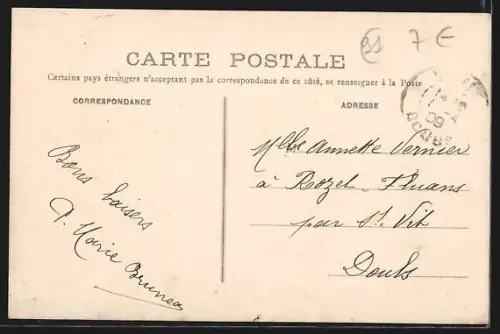 7 €
CARTE POSTALE
Certains pays étrangers n'acceptant pas la correspondance de ce côté, se renseigner à la Poste
CORRESPONDANCE
ADRESSE
09
DOUBS
Bons baisers
Marie Bruneau
Mlle Annette Vernier
à Rozet-Fluans
par St. Vit
Doubs